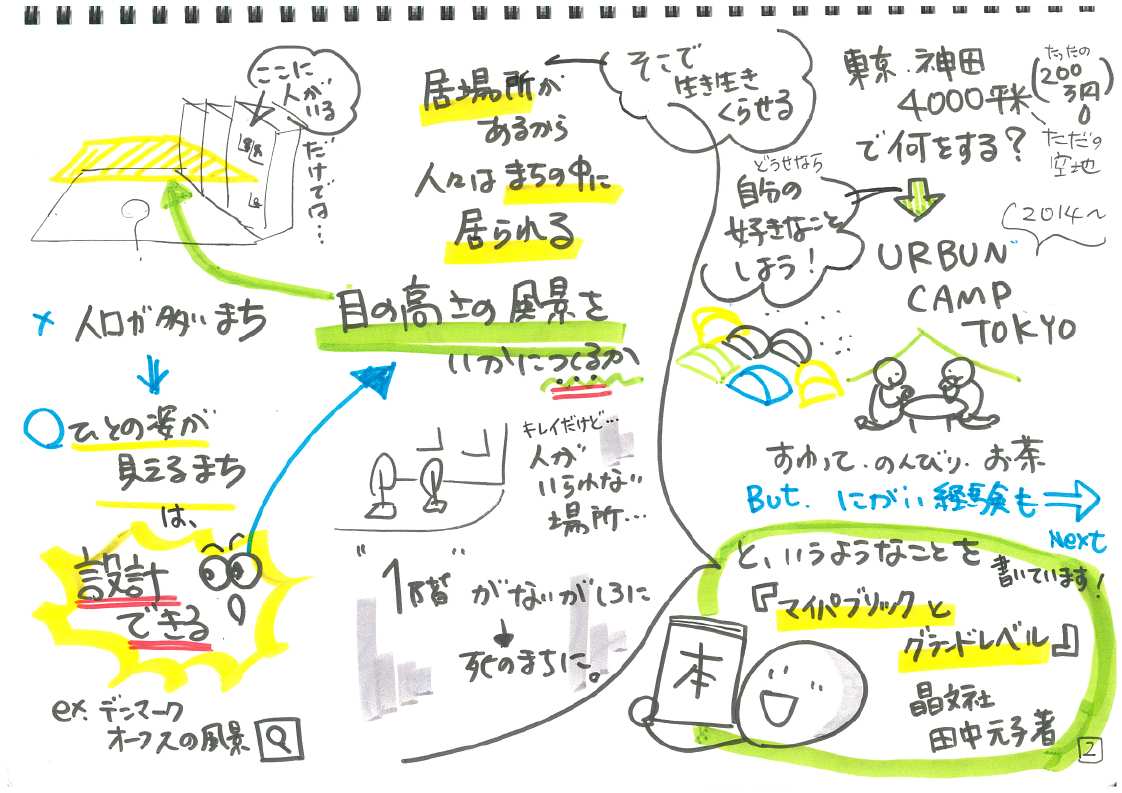 ここに
人が
いる
だけでは…
居場所が
あるから
人々はまちの中に
居られる
目の高さの風景を
いかにつくるか
× 人口が多いまち
ひとの姿が
見えるまち
は、
設計
できる
ex. デンマーク
オーフスの風景
キレイだけど…
人が
いられない
場所…
"1階"がないがしろに
死のまちに。
そこで
生き生き
くらせる
東京.神田
4000平米
(たったの
200
万円)
ただの
空地
で何をする?
どうせなら
自分の
好きなこと
しよう!
2014〜
URBUN
CAMP
TOKYO
すわって.のんびり.お茶
But. にがい経験も
Next
と、いうようなことを
書いています!
『マイパブリックと
グランドレベル』
本
晶文社
田中元子著
2